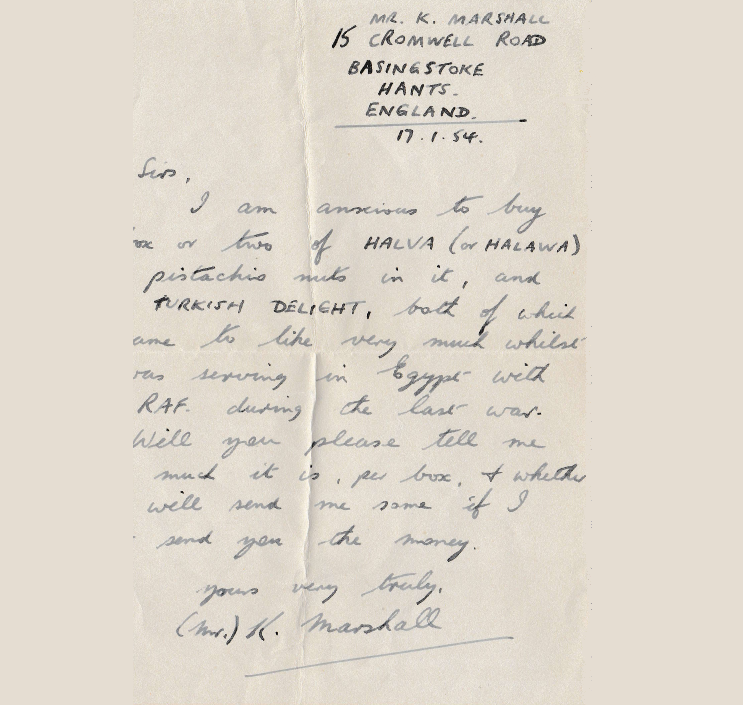 MR. K. MARSHALL
15 CROMWELL ROAD
BASINGSTOKE
HANTS.
ENGLAND.
17.1.54.
Sirs,
I am anxious to buy
ox or two of HALVA (or HALAWA)
pistachio nuts in it, and
TURKISH DELIGHT, both of which
ame to like very much whilst
was serving in Egypt with
RAF. during the last war.
Will you please tell me
much it is, per box, & whether
will send me some if I
send you the money.
yours very truly.
(Mr.) K. Marshall